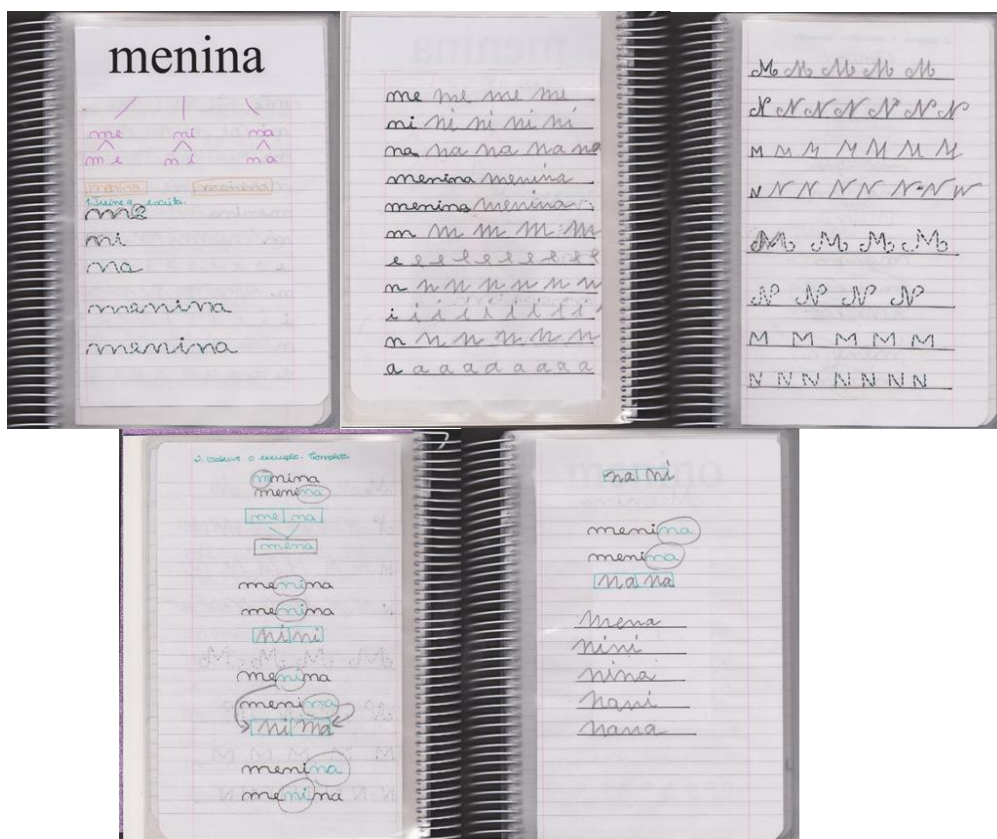 menina
me ni na
m e n i n a
menina menina
me
ni
na
menina
menina
me me me me
ni ni ni ni ni
na na na na na
menina menina
menina menina
m m m m m
e e e e e e e e e
n n n n n n n
i i i i i i i i
n n n n n n
a a a a a a a a
M M M M M
N N N N N N N
M M M M M M M
N N N N N N N
M M M M
N N N N
M M M M M
N N N N N N N
2. Observe o exemplo. Complete
menina
menina
me na
mena
menina
menina
ni ni
menina
menina
ni na
menina
menina
na ni
menina
menina
na na
mena
nini
nina
nani
nana